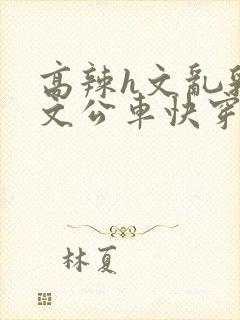 高辣h文亂
文公車快穿
林夏